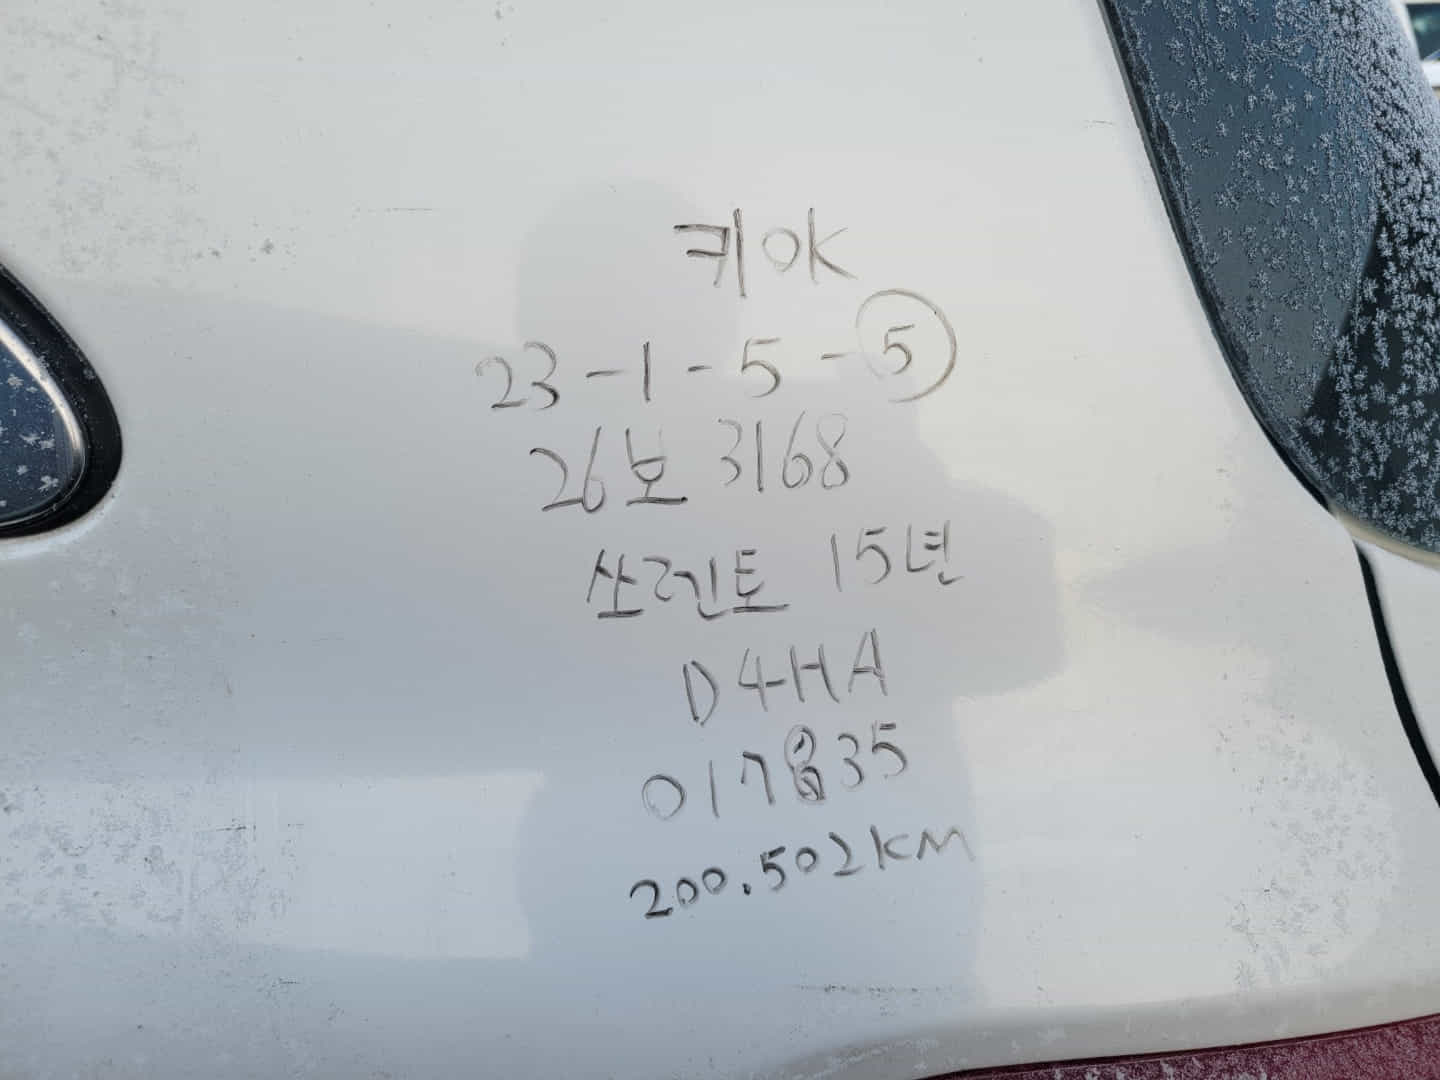 키 OK
23-1-5-⑤
26보 3168
쏘렌토 15년
D4HA
017835
200.502KM